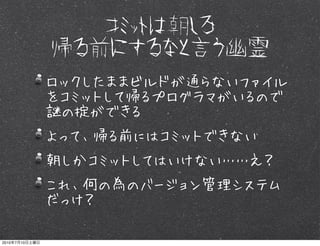 コミットは朝しろ
帰る前にするなと言う幽霊
ロックしたままビルドが通らないファイル
をコミットして帰るプログラマがいるので
謎の掟ができる
よって、帰る前にはコミットできない
朝しかコミットしてはいけない……え？
これ、何の為のバージョン管理システム
だっけ？
2010年7月10日土曜日